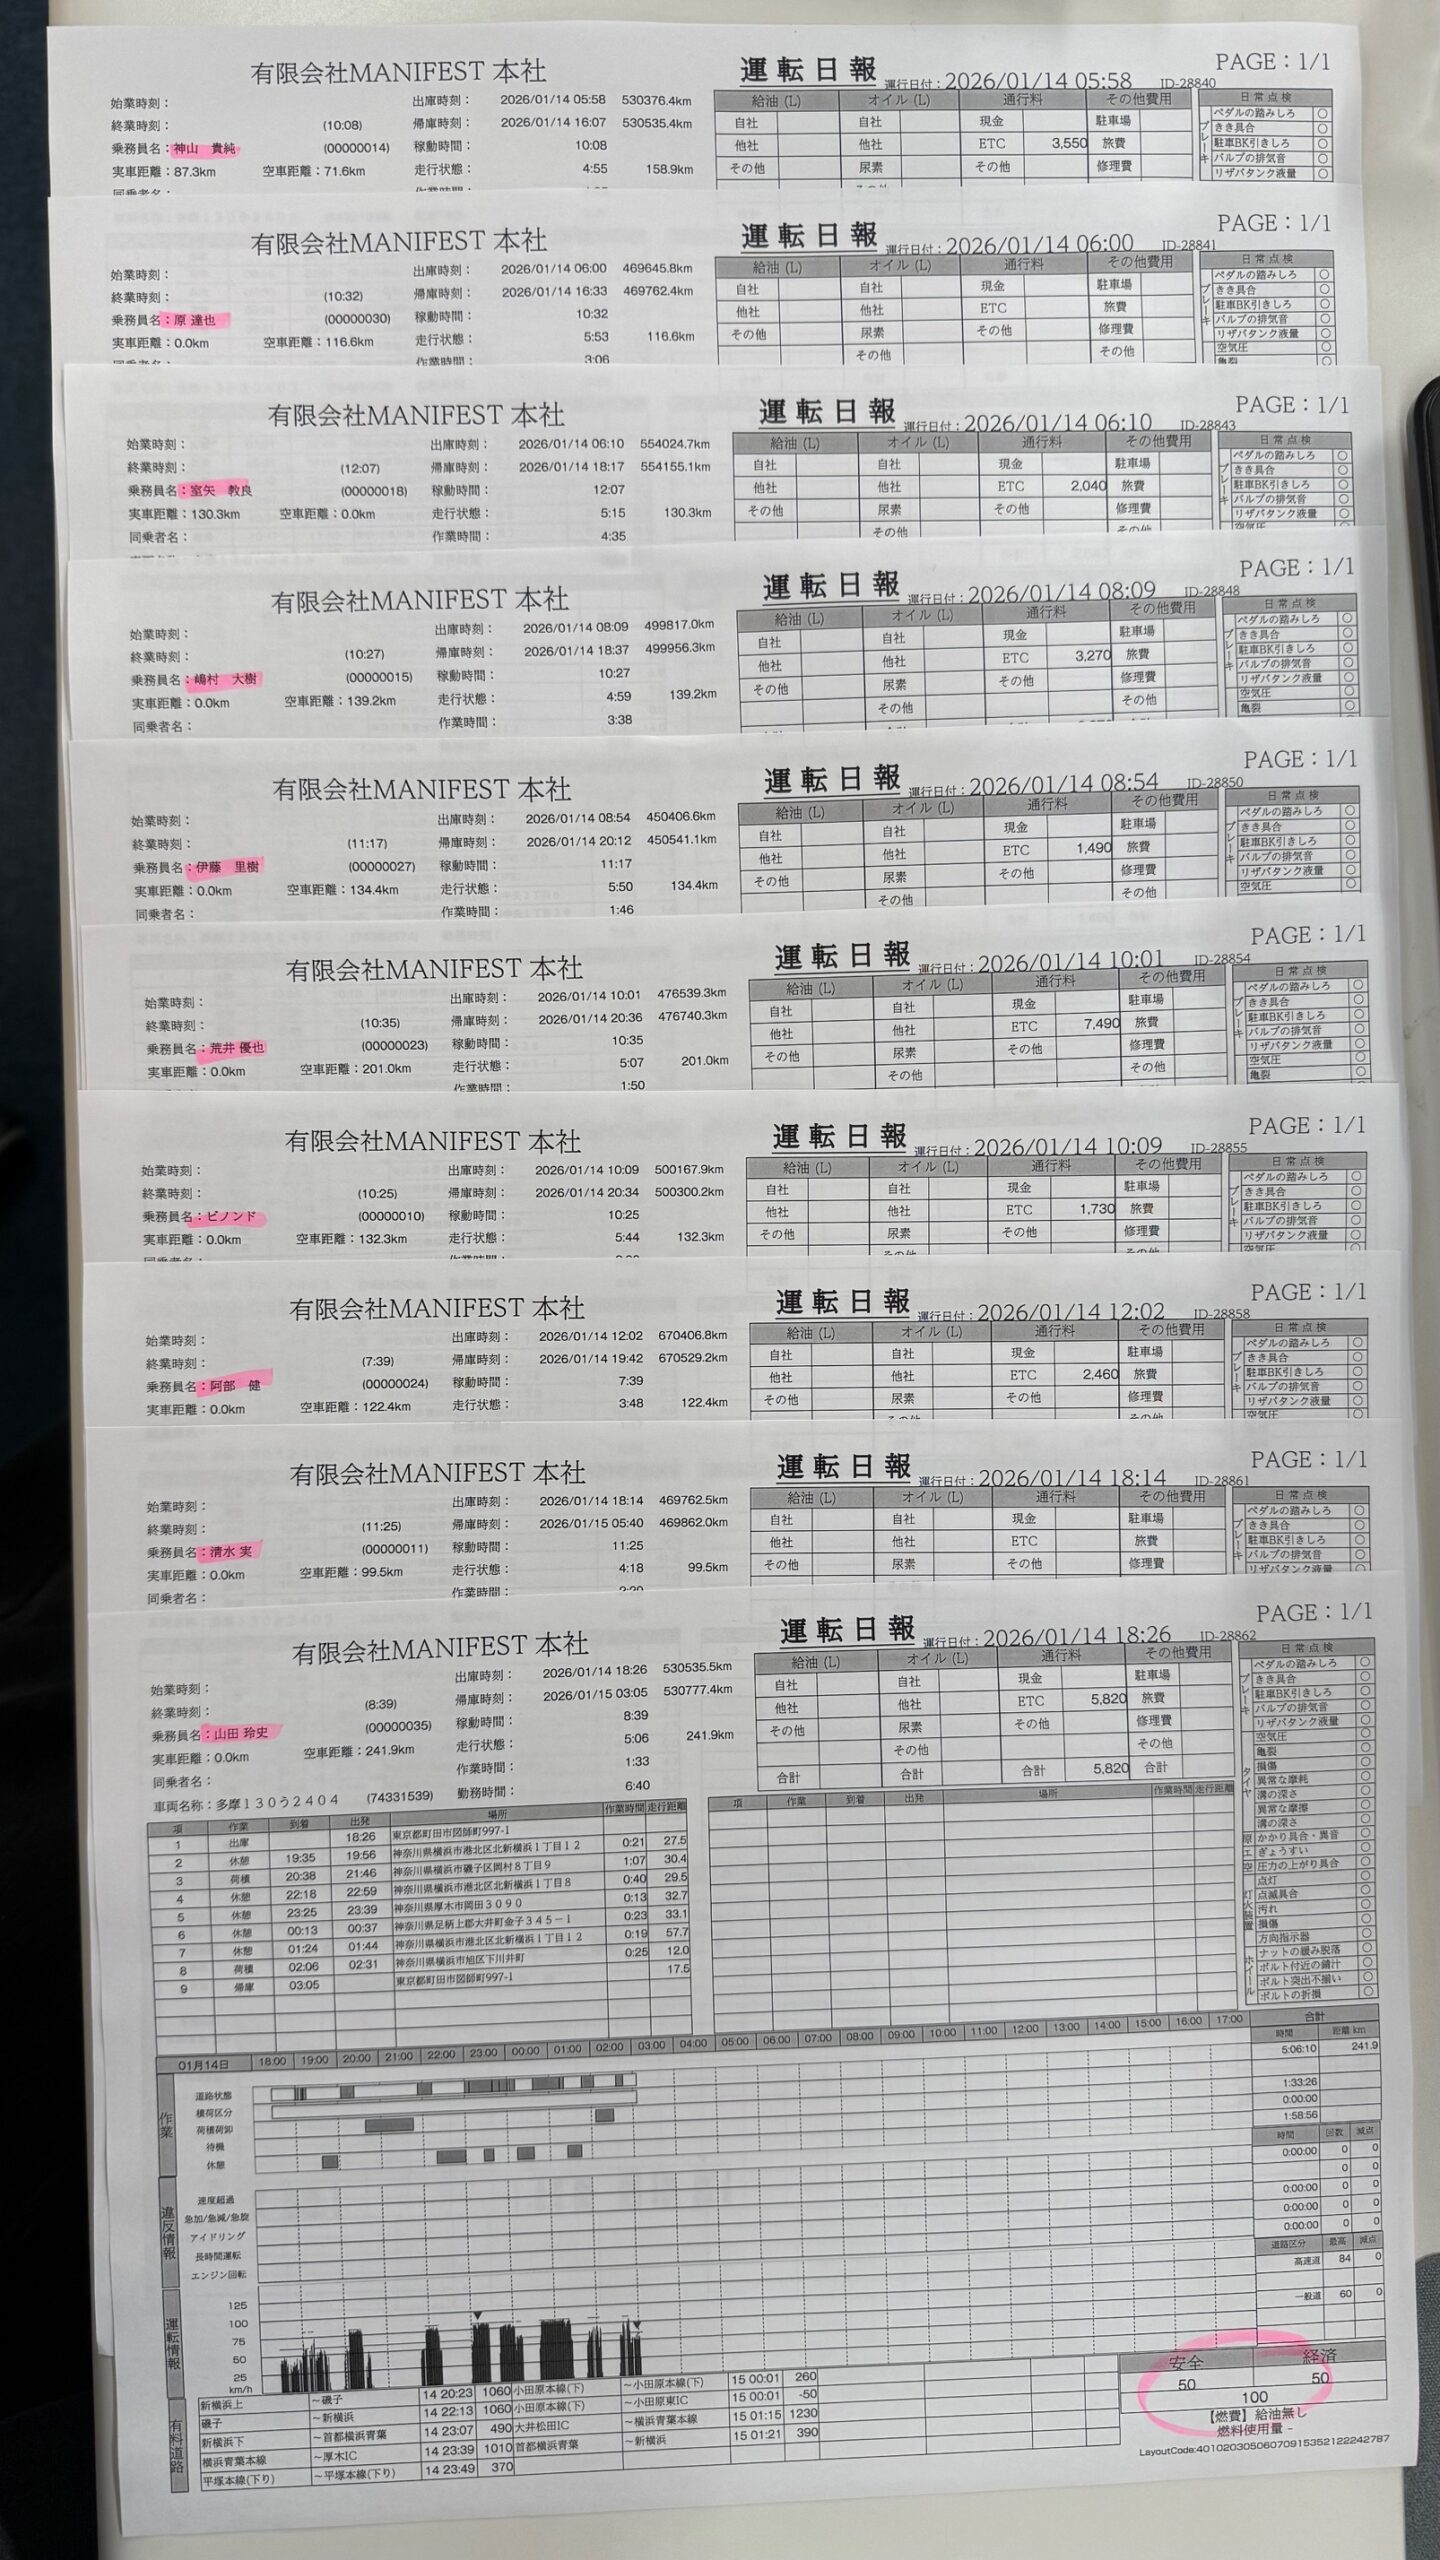 有限会社MANIFEST 本社
運転日報 運行日付：2026/01/14 05:58 ID-28840
PAGE：1/1
始業時刻：
終業時刻： (10:08)
乗務員名：神山 貴純 (00000014)
実車距離：87.3km 空車距離：71.6km
出庫時刻： 2026/01/14 05:58 530376.4km
帰庫時刻： 2026/01/14 16:07 530535.4km
稼動時間： 10:08
走行状態： 4:55 158.9km
給油 (L) オイル (L) 通行料 その他費用
自社 自社 現金 駐車場
他社 他社 ETC 3,550 旅費
その他 尿素 その他 修理費
日常点検
ブレーキ
ペダルの踏みしろ ○
きき具合 ○
駐車BK引きしろ ○
バルブの排気音 ○
リザバタンク液量 ○
有限会社MANIFEST 本社
運転日報 運行日付：2026/01/14 06:00 ID-28841
PAGE：1/1
始業時刻：
終業時刻： (10:32)
乗務員名：原 達也 (00000030)
実車距離：0.0km 空車距離：116.6km
出庫時刻： 2026/01/14 06:00 469645.8km
帰庫時刻： 2026/01/14 16:33 469762.4km
稼動時間： 10:32
走行状態： 5:53 116.6km
作業時間： 3:06
給油 (L) オイル (L) 通行料 その他費用
自社 自社 現金 駐車場
他社 他社 ETC 旅費
その他 尿素 その他 修理費
その他 その他
日常点検
ブレーキ
ペダルの踏みしろ ○
きき具合 ○
駐車BK引きしろ ○
バルブの排気音 ○
リザバタンク液量 ○
空気圧 ○
亀裂 ○
有限会社MANIFEST 本社
運転日報 運行日付：2026/01/14 06:10 ID-28843
PAGE：1/1
始業時刻：
終業時刻： (12:07)
乗務員名：室矢 教良 (00000018)
実車距離：130.3km 空車距離：0.0km
同乗者名：
出庫時刻： 2026/01/14 06:10 554024.7km
帰庫時刻： 2026/01/14 18:17 554155.1km
稼動時間： 12:07
走行状態： 5:15 130.3km
作業時間： 4:35
給油 (L) オイル (L) 通行料 その他費用
自社 自社 現金 駐車場
他社 他社 ETC 2,040 旅費
その他 尿素 その他 修理費
その他 その他
日常点検
ブレーキ
ペダルの踏みしろ ○
きき具合 ○
駐車BK引きしろ ○
バルブの排気音 ○
リザバタンク液量 ○
空気圧 ○
有限会社MANIFEST 本社
運転日報 運行日付：2026/01/14 08:09 ID-28848
PAGE：1/1
始業時刻：
終業時刻： (10:27)
乗務員名：嶋村 大樹 (00000015)
実車距離：0.0km 空車距離：139.2km
同乗者名：
出庫時刻： 2026/01/14 08:09 499817.0km
帰庫時刻： 2026/01/14 18:37 499956.3km
稼動時間： 10:27
走行状態： 4:59 139.2km
作業時間： 3:38
給油 (L) オイル (L) 通行料 その他費用
自社 自社 現金 駐車場
他社 他社 ETC 3,270 旅費
その他 尿素 その他 修理費
その他 その他
日常点検
ブレーキ
ペダルの踏みしろ ○
きき具合 ○
駐車BK引きしろ ○
バルブの排気音 ○
リザバタンク液量 ○
空気圧 ○
亀裂 ○
有限会社MANIFEST 本社
運転日報 運行日付：2026/01/14 08:54 ID-28850
PAGE：1/1
始業時刻：
終業時刻： (11:17)
乗務員名：伊藤 里樹 (00000027)
実車距離：0.0km 空車距離：134.4km
同乗者名：
出庫時刻： 2026/01/14 08:54 450406.6km
帰庫時刻： 2026/01/14 20:12 450541.1km
稼動時間： 11:17
走行状態： 5:50 134.4km
作業時間： 1:46
給油 (L) オイル (L) 通行料 その他費用
自社 自社 現金 駐車場
他社 他社 ETC 1,490 旅費
その他 尿素 その他 修理費
その他 その他
日常点検
ブレーキ
ペダルの踏みしろ ○
きき具合 ○
駐車BK引きしろ ○
バルブの排気音 ○
リザバタンク液量 ○
空気圧 ○
有限会社MANIFEST 本社
運転日報 運行日付：2026/01/14 10:01 ID-28854
PAGE：1/1
始業時刻：
終業時刻： (10:35)
乗務員名：荒井 優也 (00000023)
実車距離：0.0km 空車距離：201.0km
出庫時刻： 2026/01/14 10:01 476539.3km
帰庫時刻： 2026/01/14 20:36 476740.3km
稼動時間： 10:35
走行状態： 5:07 201.0km
作業時間： 1:50
給油 (L) オイル (L) 通行料 その他費用
自社 自社 現金 駐車場
他社 他社 ETC 7,490 旅費
その他 尿素 その他 修理費
その他 その他
日常点検
ブレーキ
ペダルの踏みしろ ○
きき具合 ○
駐車BK引きしろ ○
バルブの排気音 ○
リザバタンク液量 ○
空気圧 ○
亀裂 ○
有限会社MANIFEST 本社
運転日報 運行日付：2026/01/14 10:09 ID-28855
PAGE：1/1
始業時刻：
終業時刻： (10:25)
乗務員名：ビノンド (00000010)
実車距離：0.0km 空車距離：132.3km
出庫時刻： 2026/01/14 10:09 500167.9km
帰庫時刻： 2026/01/14 20:34 500300.2km
稼動時間： 10:25
走行状態： 5:44 132.3km
給油 (L) オイル (L) 通行料 その他費用
自社 自社 現金 駐車場
他社 他社 ETC 1,730 旅費
その他 尿素 その他 修理費
日常点検
ブレーキ
ペダルの踏みしろ ○
きき具合 ○
駐車BK引きしろ ○
バルブの排気音 ○
リザバタンク液量 ○
空気圧 ○
有限会社MANIFEST 本社
運転日報 運行日付：2026/01/14 12:02 ID-28858
PAGE：1/1
始業時刻：
終業時刻： (7:39)
乗務員名：阿部 健 (00000024)
実車距離：0.0km 空車距離：122.4km
出庫時刻： 2026/01/14 12:02 670406.8km
帰庫時刻： 2026/01/14 19:42 670529.2km
稼動時間： 7:39
走行状態： 3:48 122.4km
給油 (L) オイル (L) 通行料 その他費用
自社 自社 現金 駐車場
他社 他社 ETC 2,460 旅費
その他 尿素 その他 修理費
日常点検
ブレーキ
ペダルの踏みしろ ○
きき具合 ○
駐車BK引きしろ ○
バルブの排気音 ○
リザバタンク液量 ○
空気圧 ○
有限会社MANIFEST 本社
運転日報 運行日付：2026/01/14 18:14 ID-28861
PAGE：1/1
始業時刻：
終業時刻： (11:25)
乗務員名：清水 実 (00000011)
実車距離：0.0km 空車距離：99.5km
同乗者名：
出庫時刻： 2026/01/14 18:14 469762.5km
帰庫時刻： 2026/01/15 05:40 469862.0km
稼動時間： 11:25
走行状態： 4:18 99.5km
作業時間：
給油 (L) オイル (L) 通行料 その他費用
自社 自社 現金 駐車場
他社 他社 ETC 旅費
その他 尿素 その他 修理費
日常点検
ブレーキ
ペダルの踏みしろ ○
きき具合 ○
駐車BK引きしろ ○
バルブの排気音 ○
リザバタンク液量 ○
有限会社MANIFEST 本社
運転日報 運行日付：2026/01/14 18:26 ID-28862
PAGE：1/1
始業時刻：
終業時刻： (8:39)
乗務員名：山田 玲史 (00000035)
実車距離：0.0km 空車距離：241.9km
同乗者名：
車両名称：多摩１３０う２４０４ (74331539)
出庫時刻： 2026/01/14 18:26 530535.5km
帰庫時刻： 2026/01/15 03:05 530777.4km
稼動時間： 8:39
走行状態： 5:06 241.9km
作業時間： 1:33
勤務時間： 6:40
給油 (L) オイル (L) 通行料 その他費用
自社 自社 現金 駐車場
他社 他社 ETC 5,820 旅費
その他 尿素 その他 修理費
その他 その他
合計 合計 合計 5,820 合計
日常点検
ブレーキ
ペダルの踏みしろ ○
きき具合 ○
駐車BK引きしろ ○
バルブの排気音 ○
リザバタンク液量 ○
タイヤ
空気圧 ○
亀裂 ○
損傷 ○
異常な摩耗 ○
溝の深さ ○
異常な摩擦 ○
溝の深さ ○
原 かかり具合・異音 ○
エ ぎょうすい ○
空 圧力の上がり具合 ○
灯火装置
点灯 ○
点滅具合 ○
汚れ ○
損傷 ○
方向指示器 ○
ホイール
ナットの緩み脱落 ○
ボルト付近の錆汁 ○
ボルト突出不揃い ○
ボルトの折損 ○
項 作業 到着 出発 場所 作業時間 走行距離
1 出庫 18:26 東京都町田市図師町997-1
2 休憩 19:35 19:56 神奈川県横浜市港北区北新横浜１丁目１２ 0:21 27.5
3 荷積 20:38 21:46 神奈川県横浜市磯子区岡村８丁目９ 1:07 30.4
4 休憩 22:18 22:59 神奈川県横浜市港北区北新横浜１丁目８ 0:40 29.5
5 休憩 23:25 23:39 神奈川県厚木市岡田３０９０ 0:13 32.7
6 休憩 00:13 00:37 神奈川県足柄上郡大井町金子３４５－１ 0:23 33.1
7 休憩 01:24 01:44 神奈川県横浜市港北区北新横浜１丁目１２ 0:19 57.7
8 荷積 02:06 02:31 神奈川県横浜市旭区下川井町 0:25 12.0
9 帰庫 03:05 東京都町田市図師町997-1 17.5
項 作業 到着 出発 場所 作業時間 走行距離
01月14日 18:00 19:00 20:00 21:00 22:00 23:00 00:00 01:00 02:00 03:00 04:00 05:00 06:00 07:00 08:00 09:00 10:00 11:00 12:00 13:00 14:00 15:00 16:00 17:00
合計
時間 距離 km
作業
道路状態 5:06:10 241.9
積荷区分
荷積荷卸 1:33:26
待機 0:00:00
休憩 1:58:56
時間 回数 減点
違反情報
速度超過 0:00:00 0 0
急加/急減/急旋 0 0
アイドリング 0:00:00 0 0
長時間運転 0:00:00 0 0
エンジン回転 0:00:00 0 0
道路区分 最高 減点
高速道 84 0
一般道 60 0
運転情報
125
100
75
50
25
km/h
有料道路
新横浜上 ～磯子 14 20:23 1060
磯子 ～新横浜 14 22:13 1060
新横浜下 ～首都横浜青葉 14 23:07 490
横浜青葉本線 ～厚木IC 14 23:39 1010
平塚本線(下り) ～平塚本線(下り) 14 23:49 370
小田原本線(下) ～小田原本線(下) 15 00:01 260
小田原本線(下) ～小田原東IC 15 00:01 -50
大井松田IC ～横浜青葉本線 15 01:15 1230
首都横浜青葉 ～新横浜 15 01:21 390
安全 経済
50 50
100
【燃費】給油無し
燃料使用量 -
LayoutCode:401020305060709153521222427​87